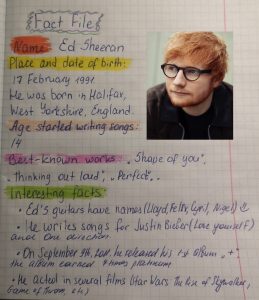 Fact File
Name: Ed Sheeran
Place and date of birth:
17 February 1991
He was born in Halifax,
West Yorkshire, England.
Age started writing songs:
14
Best-known works: „Shape of you",
„Thinking out loud", „Perfect",..
Interesting facts:
• Ed's guitars have names (Lloyd, Felix, Cyril, Nigel)
• He writes songs for Justin Bieber (Love yourself)
and One direction.
• On September 9th, 2011. he released his 1st album, "+"
the album earned platinum
• He acted in several films (Star Wars: The Rise of Skywalker,
Game of Thron, etc)